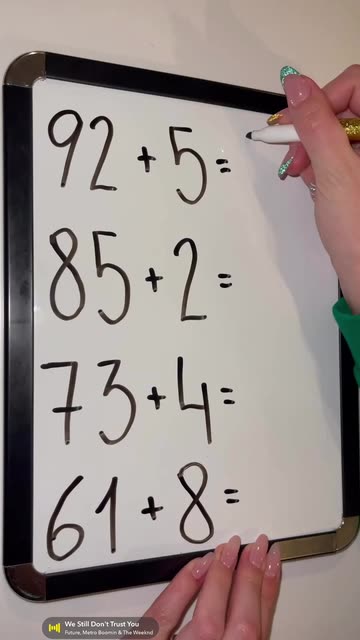 92 + 5 =
85 + 2 =
73 + 4 =
61 + 8 =
We Still Don't Trust You
Future, Metro Boomin & The Weeknd